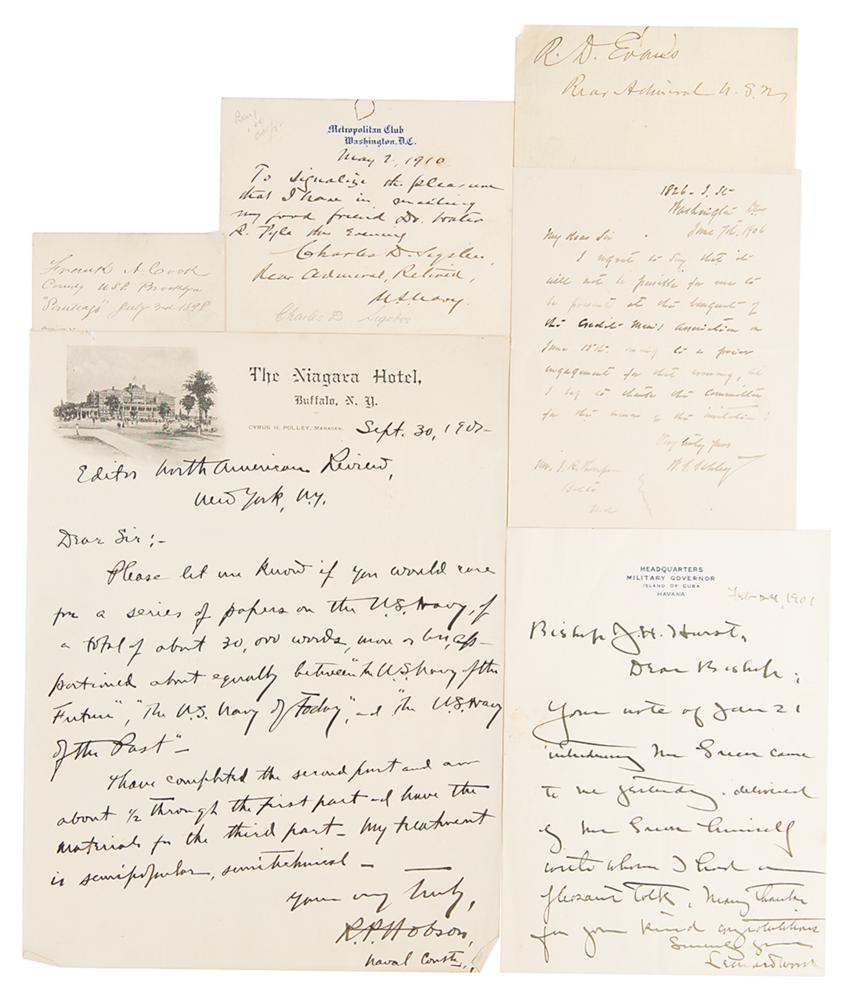 R. D. Evans
Rear Admiral U.S.N.
Metropolitan Club
Washington, D.C.
May 2, 1910
To signalize the pleasure
that I have in meeting
my good friend Dr. Walter
R. this Evening
Charles D. Sigsbee,
Rear Admiral, Retired,
U.S. Navy.
Charles D Sigsbee
Frank A. Cook
Comdg USS Brooklyn
"Santiago" July 3rd 1898
1826 - I. St
Washington DC
June 7th, 1906
My dear Sir
I regret to say that it
will not be possible for me to
be present at the banquet of
the Credit Men's Association on
June owing to a prior
engagement for that evening,
I beg to thank the Committee
for the honor of the invitation.
Very truly yours
W. S. Schley
Mr. J. R.
Balto
Md
The Niagara Hotel,
Buffalo, N. Y.
CYRUS H. POLLEY, MANAGER.
Sept. 30, 190
Editor North American Review,
New York, N.Y.
Dear Sir:-
Please let me know if you would care
for a series of papers on the U.S. Navy, of
a total of about 30,000 words, more or less, ap-
portioned about equally between "The U.S. Navy of the
Future", "The U.S. Navy of Today", and "The U.S. Navy
of the Past" -
I have completed the second part and am
about 1/2 through the first part and have the
materials for the third part - My treatment
is semipopular, semitechnical -
Yours very Truly,
R. P. Hobson,
Naval Constr.,
HEADQUARTERS
MILITARY GOVERNOR
ISLAND OF CUBA
HAVANA
Feb 1901
Bishop J. H. Hurst,
Dear Bishop;
Your note of Jan 21
introducing Mr Green came
to me yesterday, delivered
by Mr Green himself
with whom I had a
pleasant talk, Many thanks
for your kind congratulations
Sincerely yours
Leonard Wood